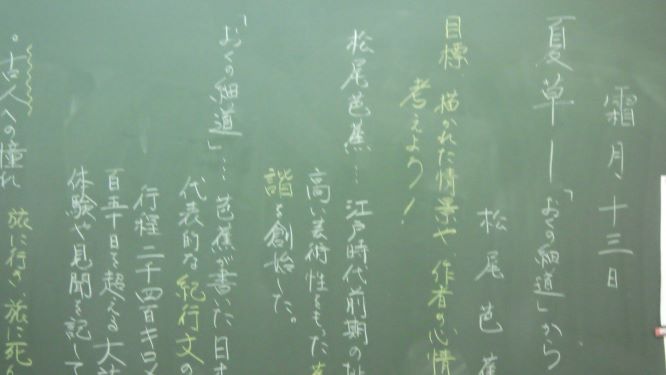 霜月、十三日
夏草―「おくの細道」から
松尾芭蕉
目標 描かれた情景や、作者の心情
考えよう！
松尾芭蕉…江戸時代前期の
高い美術性をもった
諧を創始した。
「おくの細道」…芭蕉が書いた日本
代表的な紀行文の
行程二千四百キロメ
百五十日を超える大
体験や見聞を記して
。古人への憧れ 旅に行き、旅に死